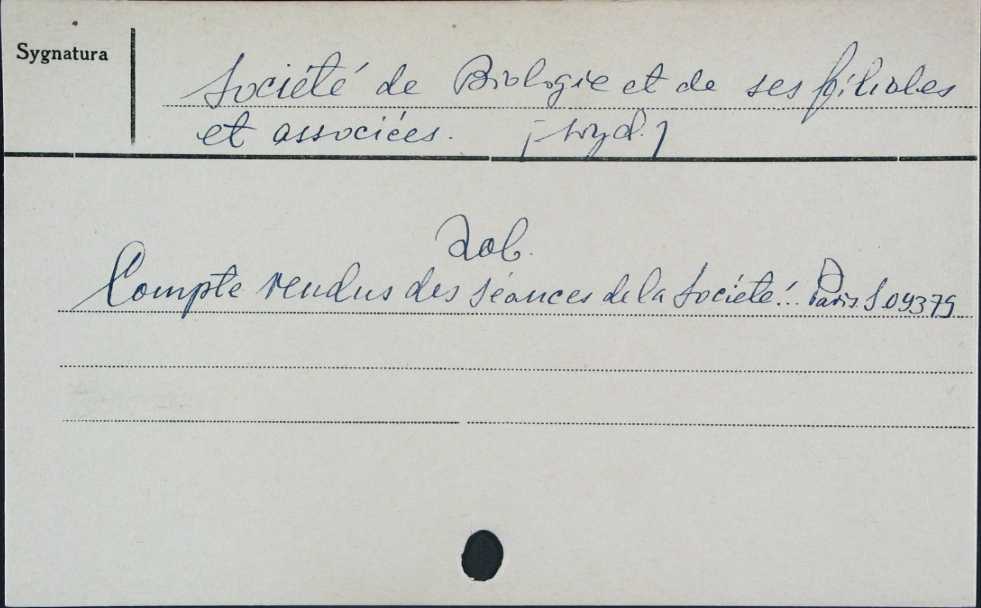 Sygnatura
Société de Biologie et de ses filiales
et associées. [wyd.]
Zob.
Compte rendus des séances de la Société... Paris S.09379